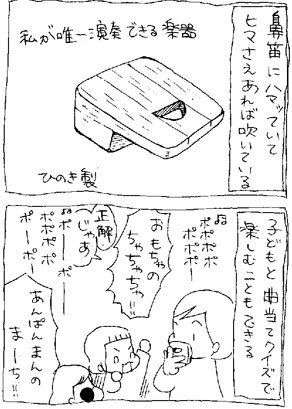 鼻笛にハマッていて
ヒマさえあれば吹いている
私が唯一演奏できる楽器
ひのき製
子どもと曲当てクイズで
楽しむこともできる
♬ポー
ポポポポ
ポポー
おもちゃの
ちゃちゃちゃ!!
正解
じゃあ
♬ポーポー
ポポポポ
ポーポー
あんぱんまんの
まーち!!